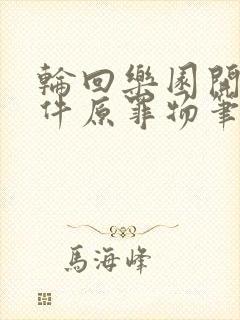 輪回樂園開
件原罪物筆
馬海峰